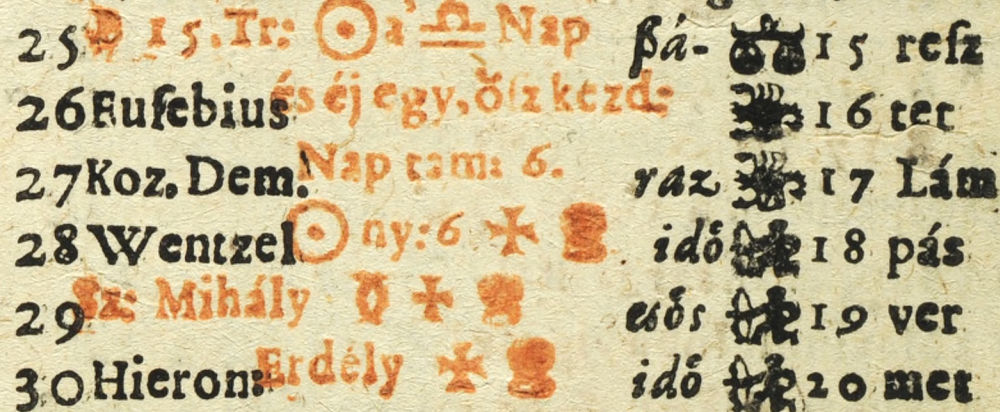 25 D 15. Tr: ☉ a ♎ Nap ßá- 15 reſz
26 Euſebius és éj egy, őſz kezd: 16 tet
27 Koz. Dem. Nap tam: 6. raz 17 Lám
28 Wentzel ☉ ny: 6 ✠ idő 18 pás
29 Sz: Mihály ✠ esős 19 ver
30 Hieron: Erdély ✠ idő 20 met